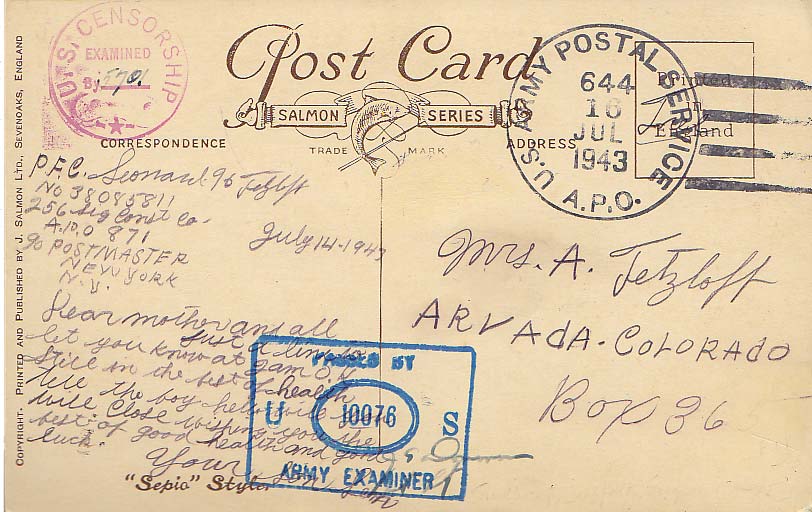 U.S. CENSORSHIP
EXAMINED
By 5701
Post Card
SALMON SERIES
TRADE MARK
CORRESPONDENCE
ADDRESS
Printed
in
England
U.S. ARMY POSTAL SERVICE
644
16
JUL
1943
A.P.O.
COPYRIGHT. PRINTED AND PUBLISHED BY J. SALMON LTD., SEVENOAKS, ENGLAND
P.F.C. Leonard Fetzloff
No 38085811
256 Sig Const Co.
A.P.O 871
℅ POSTMASTER
NEW YORK
N.Y.
July 14-1943
Dear mother and all
Just a line to
let you know at I am O.K.
still in the best of health
tell the boy hello
will close wishing you the
best of good health and good
luck.
Your Son
Mrs. A. Fetzloff
ARVADA-COLORADO
Box 36
PASSED BY
U 10076 S
ARMY EXAMINER
"Sepio" Style.